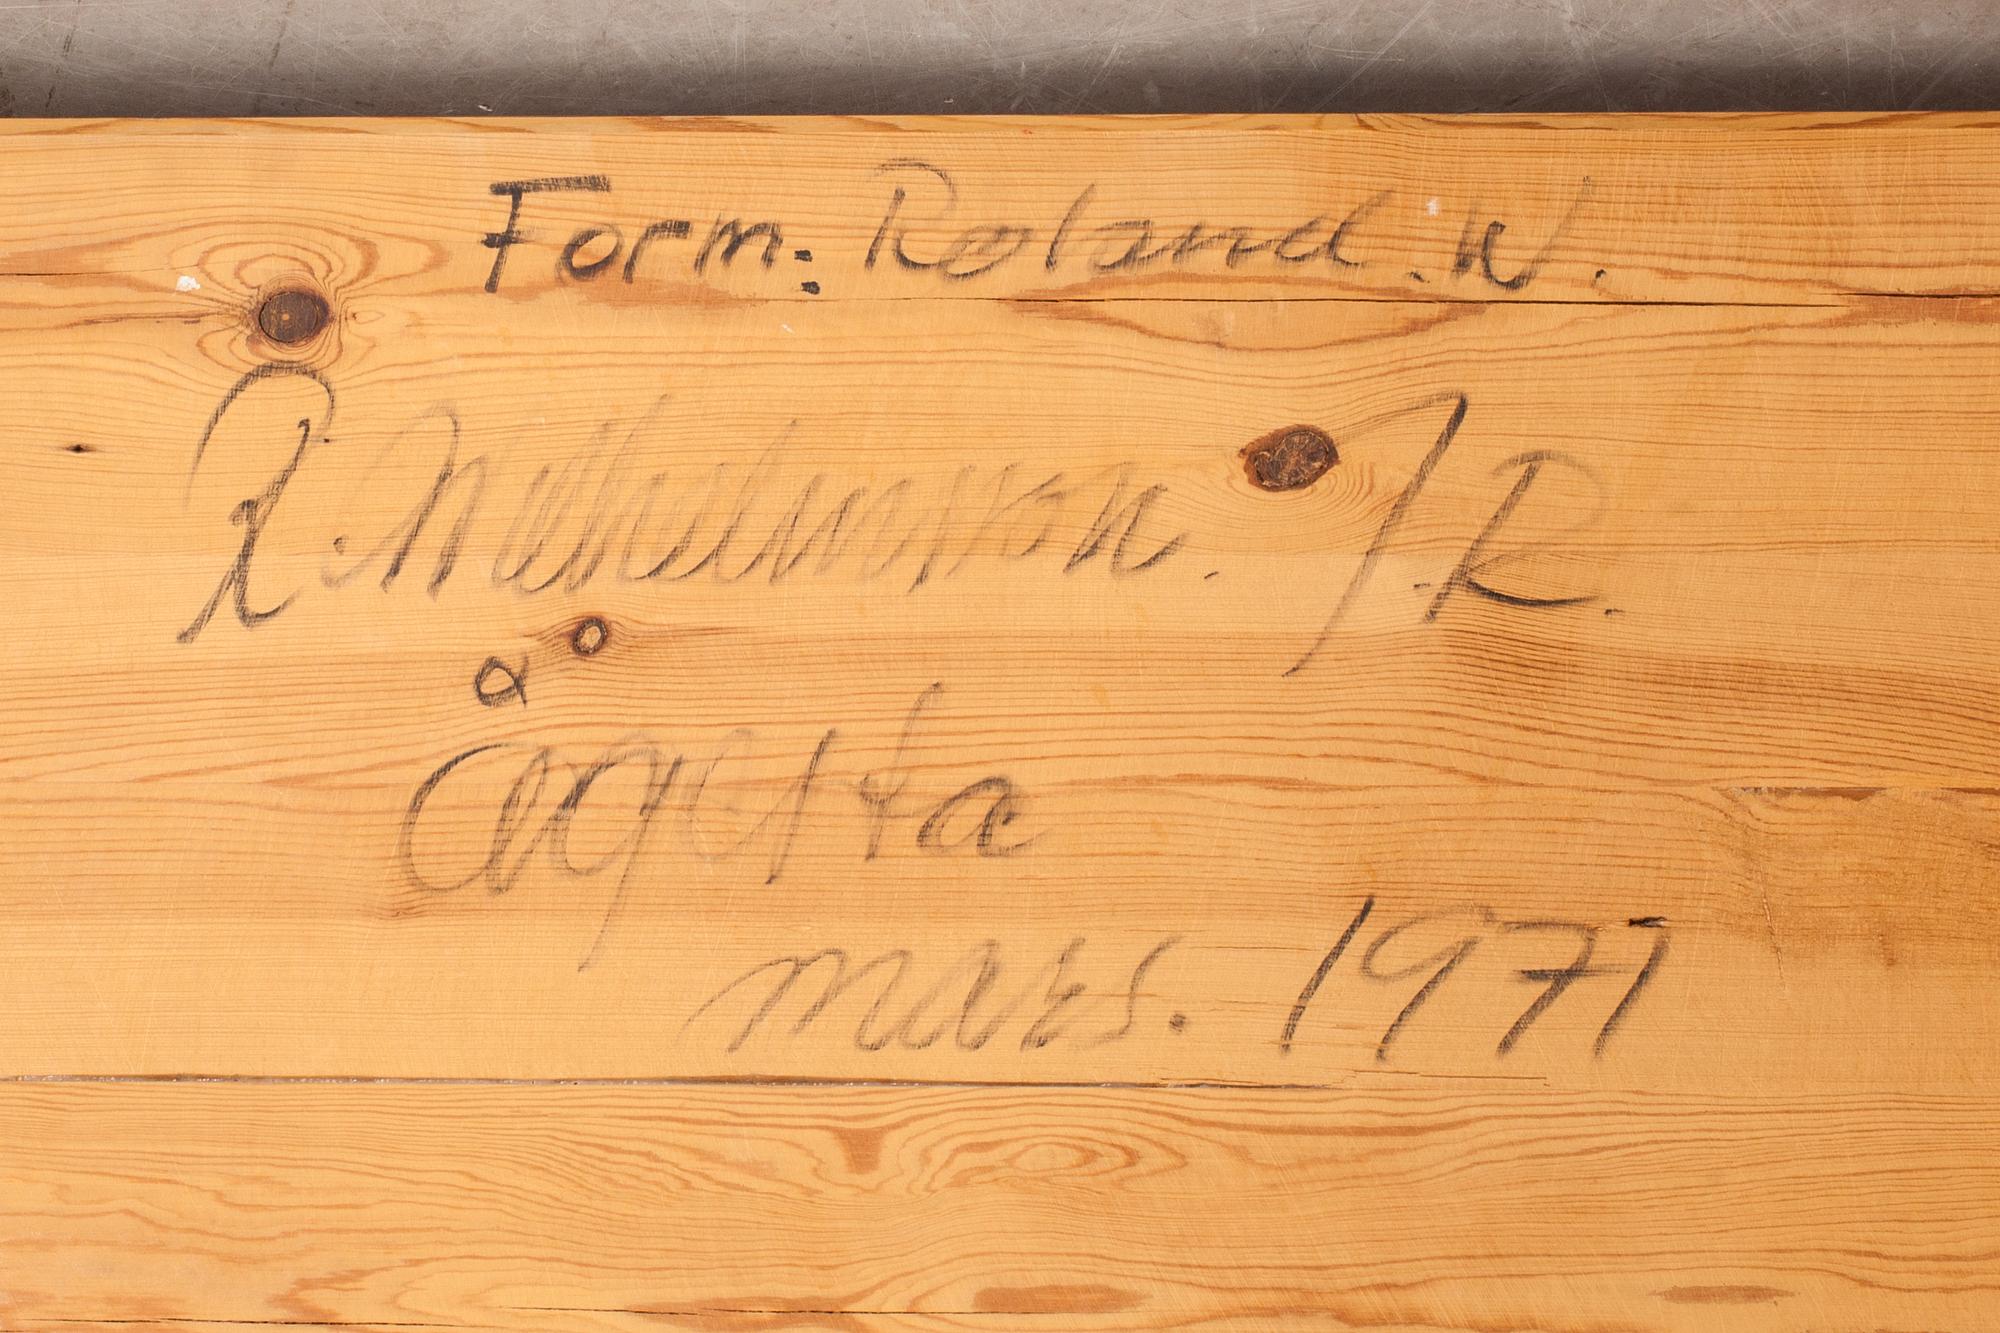 Form: Roland. W.
R. Wilhelmsson. / R.
Ågesta
mars. 1971